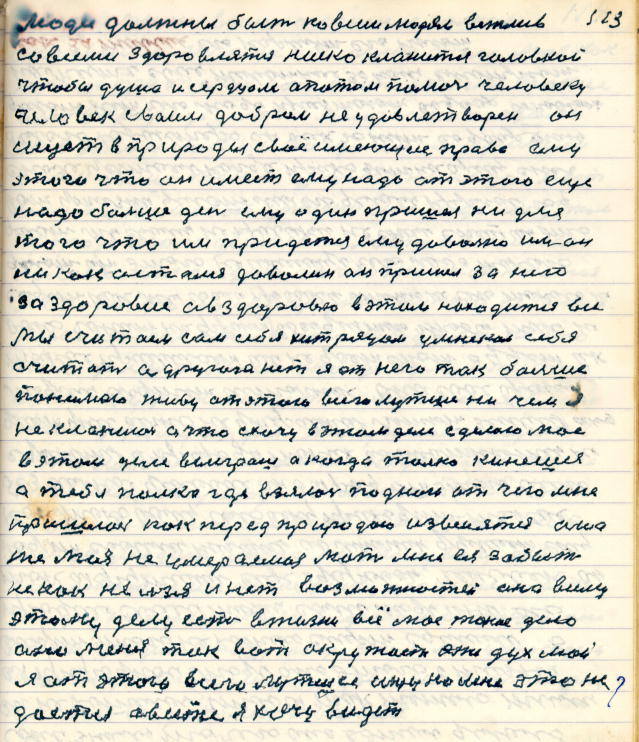 523
Люди должны быт ко всим людям вежлив
со всими здоровлятся ниско кланится головкой
чтобы душа и сердцом а потом помоч человеку
человек своим добром не удовлетворен он
ищет в природы своё имеющие право ему
этого что он имеет ему надо от этого еще
надо болше ден ему один пришел ни для
того что им придется ему доволно им он
никак астался доволин он пришел за него
за здоровие а в здоровью в этом находится вси
мы считаем сам себя хитрецом умнеком себя
считат а другога нет я от него так болше
понимаю живу от этого всего лутше ни чем
не кланился а что схочу в этом деле сделаю мое
в этом деле выиграш а когда толко кинешся
а тебя полка где взялас подној от чего мне
пришилос как перед природаю извенятся она
же моя не умераемая мат мне ея забыт
некак не лзя и нет возможностей она вину
этому делу ест в жизни всё мое такое дело
оно меня так вот окружает эти дух мой
я от этого всего лутшее ищу но мне это не
дается а вить я хочу видет
?